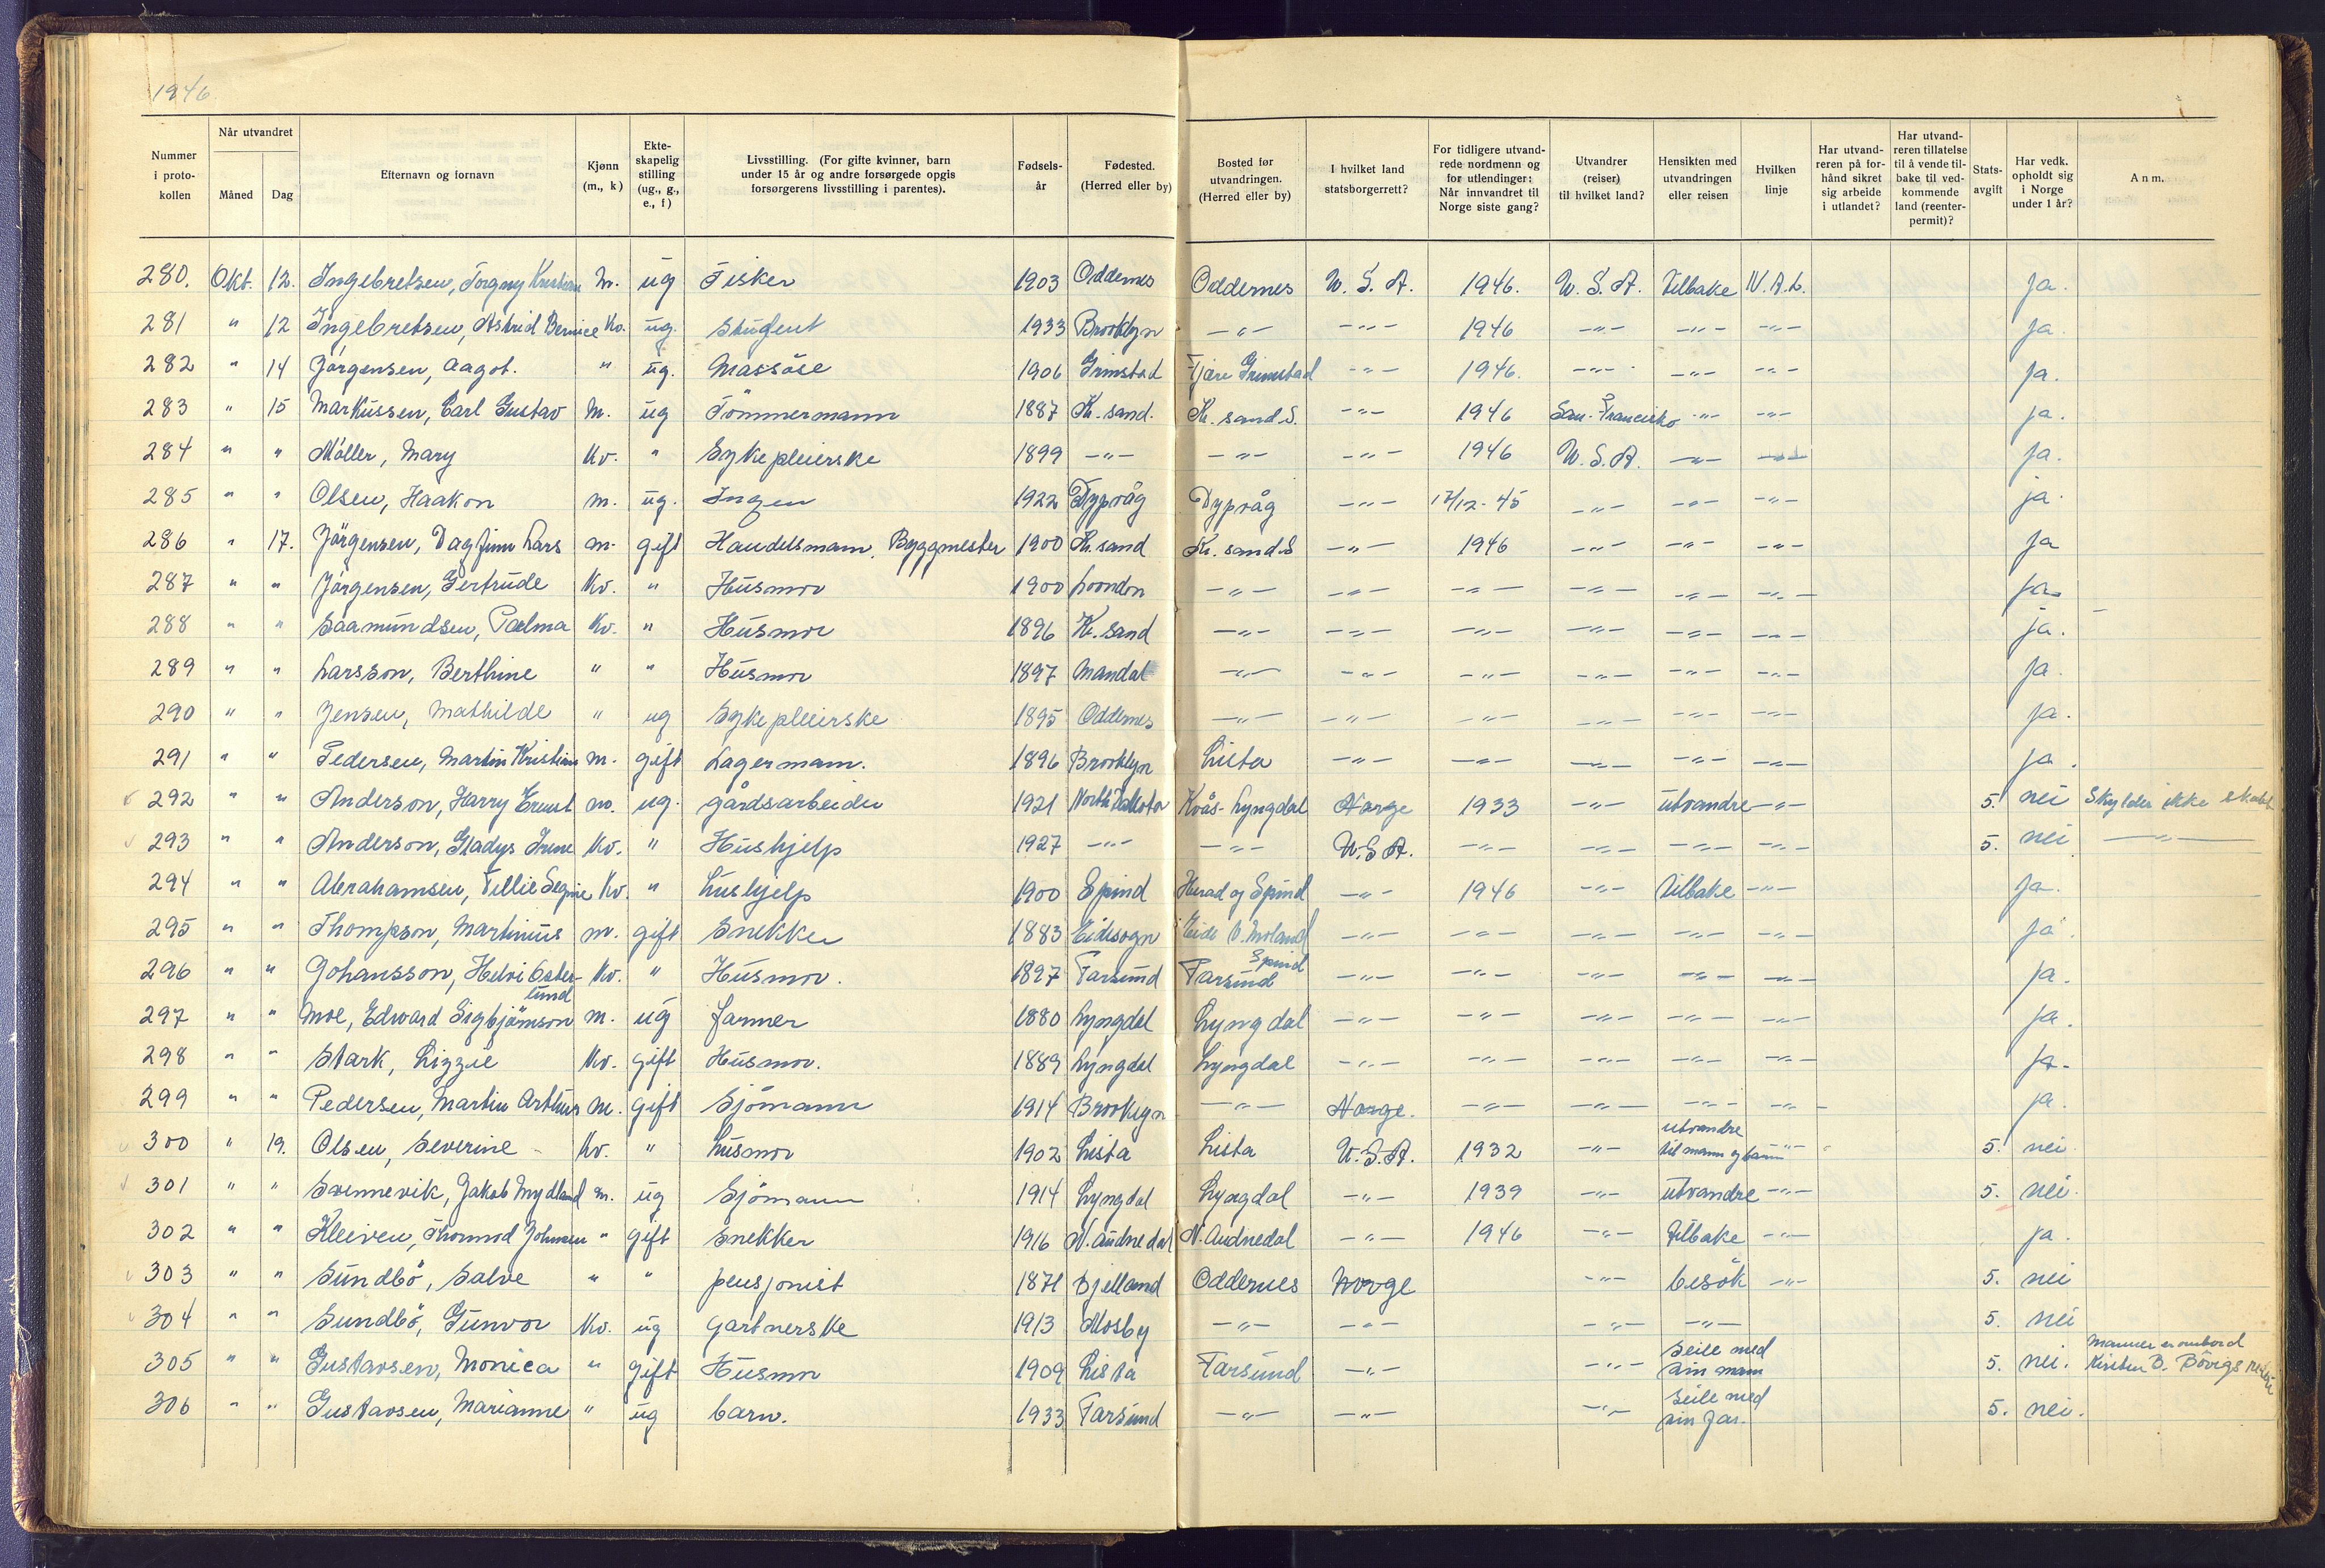 1946
Nummer i proto- kollen | Når utvandret Måned Dag | Efternavn og fornavn | Kjønn (m., k) | Ekte- skapelig stilling (ug., g., e., f) | Livsstilling. (For gifte kvinner, barn under 15 år og andre forsørgede opgis forsørgerens livsstilling i parentes). | Fødsels- år | Fødested. (Herred eller by) | Bosted før utvandringen. (Herred eller by) | I hvilket land statsborgerrett? | For tidligere utvand- rede nordmenn og for utlendinger: Når innvandret til Norge siste gang? | Utvandrer (reiser) til hvilket land? | Hensikten med utvandringen eller reisen | Hvilken linje | Har utvand- reren på for- hånd sikret sig arbeide i utlandet? | Har utvand- reren tillatelse til å vende til- bake til ved- kommende land (reenter- permit)? | Stats- avgift | Har vedk. opholdt sig i Norge under 1 år? | Anm.
280. Okt. 12. Ingebretsen, Torgny Kristian M. ug Fisker 1903 Oddernes Oddernes U. S. A. 1946. U. S. A. Tilbake N. A. L. ja.
281 " 12 Ingebretsen, Astrid Bernice Kv. ug. Student 1933 Brooklyn —"— —"— 1946 —"— —"— —"— ja.
282 " 14 Jörgensen, Aagot. " ug. Massöse 1906 Grimstad Fjære Grimstad —"— 1946. —"— —"— —"— ja.
283 " 15 Markussen, Carl Gustav M. ug Tömmermann 1887 Kr. sand. Kr. sand S. —"— 1946 San-Francisko —"— —"— ja.
284 " " Möller, Mary Kv. " Sykepleierske 1899 —"— —"— —"— 1946 U. S. A. —"— —"— ja.
285 " " Olsen, Haakon m. ug. Ingen 1922 Dypvåg Dypvåg —"— 17/12-45 —"— —"— —"— ja.
286 " 17. Jörgensen, Dagfinn Lars m. gift Handelsmann, Byggmester 1900 Kr. sand Kr. sand S —"— 1946 —"— —"— —"— ja
287 " " Jörgensen, Gertrude Kv. " Husmor 1900 Loondon —"— —"— —"— —"— —"— —"— ja.
288 " " Saamundsen, Palma Kv. " Husmor 1896 Kr. sand —"— —"— —"— —"— —"— —"— ja.
289 " " Larsson, Berthine " " Husmor 1897 Mandal —"— —"— —"— —"— —"— —"— ja.
290 " " Jensen, Mathilde " ug Sykepleierske 1895 Oddernes —"— —"— —"— —"— —"— —"— ja.
291 " " Pedersen, Martin Kristian m. gift Lagermann. 1896 Brooklyn Lista —"— —"— —"— —"— —"— ja.
292 " " Anderson, Harry Ernst m. ug. gårdsarbeider 1921 North Dakota Kvås-Lyngdal Norge 1933 —"— utvandre —"— 5. nei Skylder ikke skatt
293 " " Anderson, Gladys Irene Kv. " Hushjelp 1927 —"— —"— U. S. A. —"— —"— —"— —"— 5. nei —"—
294 " " Abrahamsen, Tillie Segnie Kv. " hushjelp 1900 Spind Herad og Spind —"— 1946 —"— tilbake —"— ja.
295 " " Thompson, Martinius m. gift Snekker 1883 Eidesogn Eide V. Moland —"— —"— —"— —"— —"— ja.
296 " " Johansson, Helvi Öster- Kv. " Husmor. 1897 Farsund Farsund Spind —"— —"— —"— —"— —"— ja.
lund
297 " " Moe, Edward Sigbjörnson m. ug farmer 1880 Lyngdal Lyngdal —"— —"— —"— —"— —"— ja.
298 " " Stark, Lizzie Kv. gift Husmor. 1889 Lyngdal Lyngdal —"— —"— —"— —"— —"— ja.
299 " " Pedersen, Martin Arthur m. gift Sjömann 1914 Brooklyn —"— Norge. —"— —"— —"— —"— ja.
300 " 19. Olsen, Severine Kv. " husmor 1902 Lista Lista U. S. A. 1932 —"— utvandre til mann og barn —"— 5. nei.
301 " " Svennevik, Jakob Mydland m. ug Sjömann 1914 Lyngdal Lyngdal —"— 1939 —"— utvandre —"— 5. nei.
302 " " Kleiven, Thormod Johnsen " gift Snekker 1916 N. Audnedal N. Audnedal —"— 1946 —"— tilbake —"— ja.
303 " " Sundbö, Salve " " pensjonist 1871 Bjelland Oddernes Norge —"— besök —"— 5. nei
304 " " Sundbö, Gunvor Kv. ug Gartnerske 1913 Mosby —"— —"— —"— —"— 5. nei
305 " " Gustavsen, Monica " gift Husmor 1909 Lista Farsund —"— —"— Seile med sin mann 5. nei. Mannen er ombord Kirsten B. Bövigs rederi
306 " " Gustavsen, Marianne " ug barn. 1933 Farsund —"— —"— —"— Seile med sin far. 5. nei.